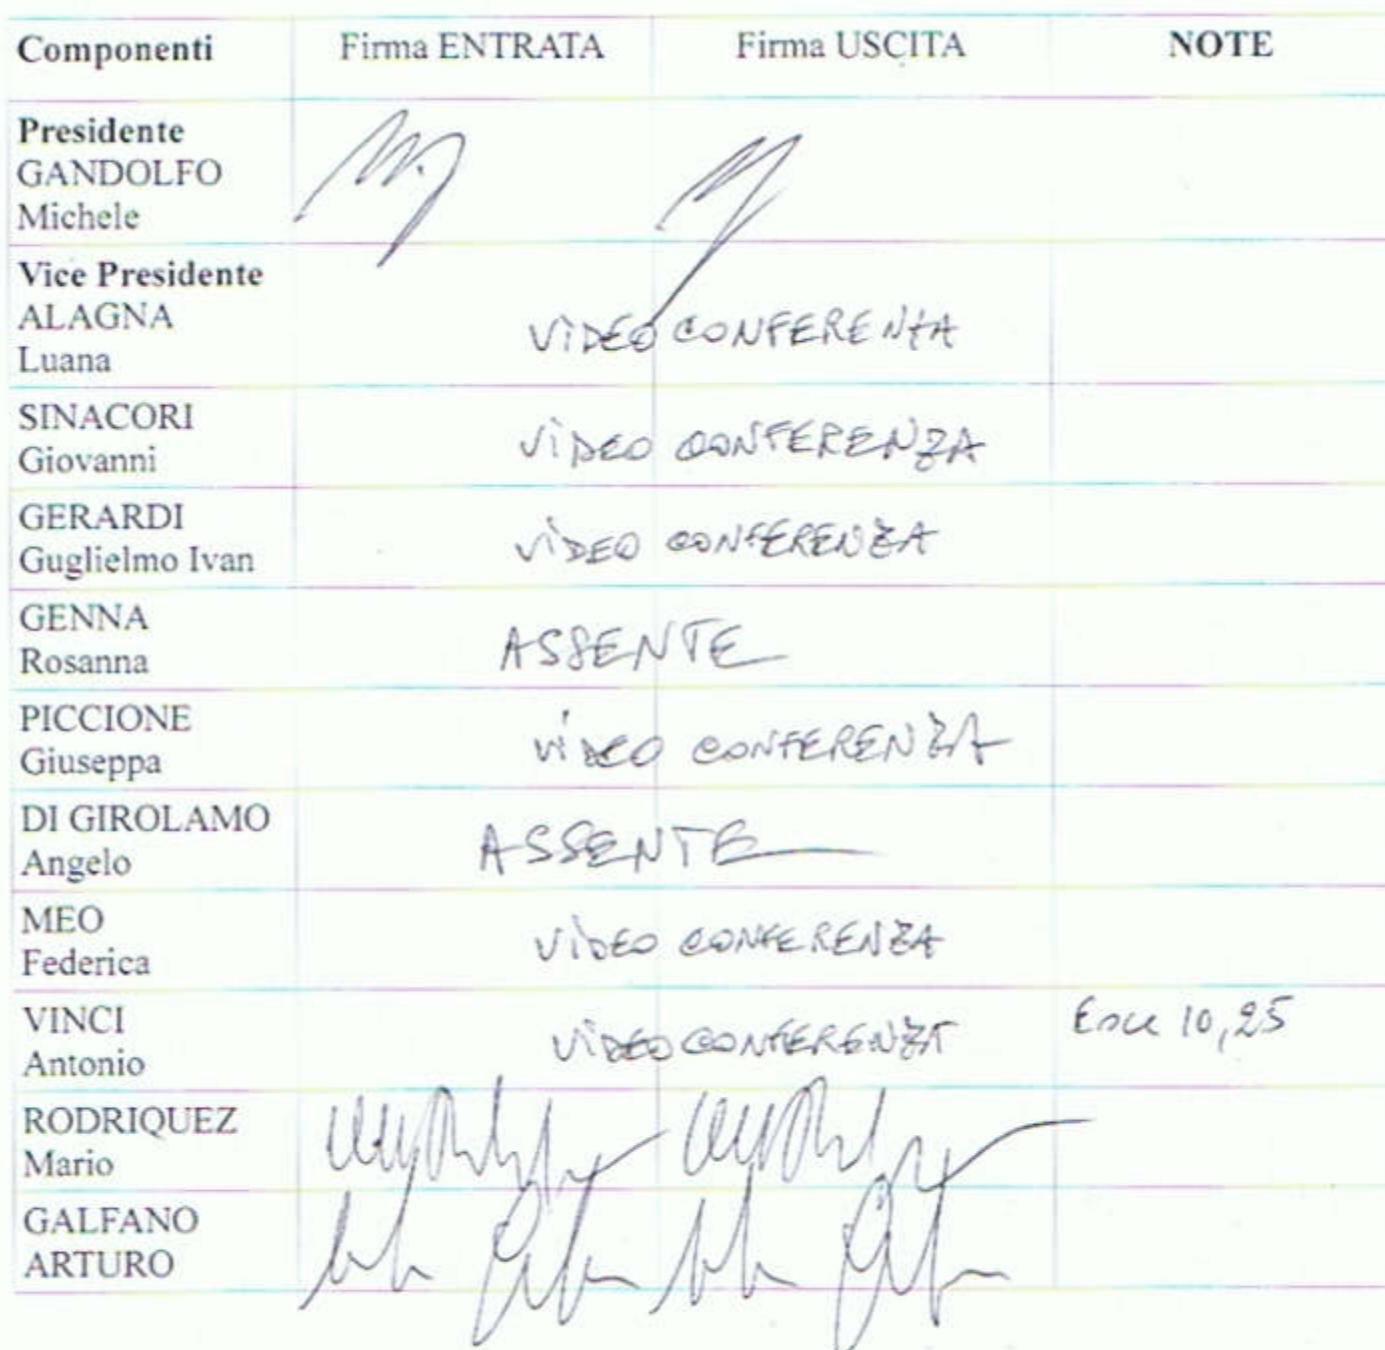 Componenti Firma ENTRATA Firma USCITA NOTE
Presidente
GANDOLFO
Michele
Vice Presidente
ALAGNA
Luana
VIDEO CONFERENZA
SINACORI
Giovanni
VIDEO CONFERENZA
GERARDI
Guglielmo Ivan
VIDEO CONFERENZA
GENNA
Rosanna
ASSENTE
PICCIONE
Giuseppa
VIDEO CONFERENZA
DI GIROLAMO
Angelo
ASSENTE
MEO
Federica
VIDEO CONFERENZA
VINCI
Antonio
VIDEO CONFERENZA
Esce 10,25
RODRIQUEZ
Mario
GALFANO
ARTURO